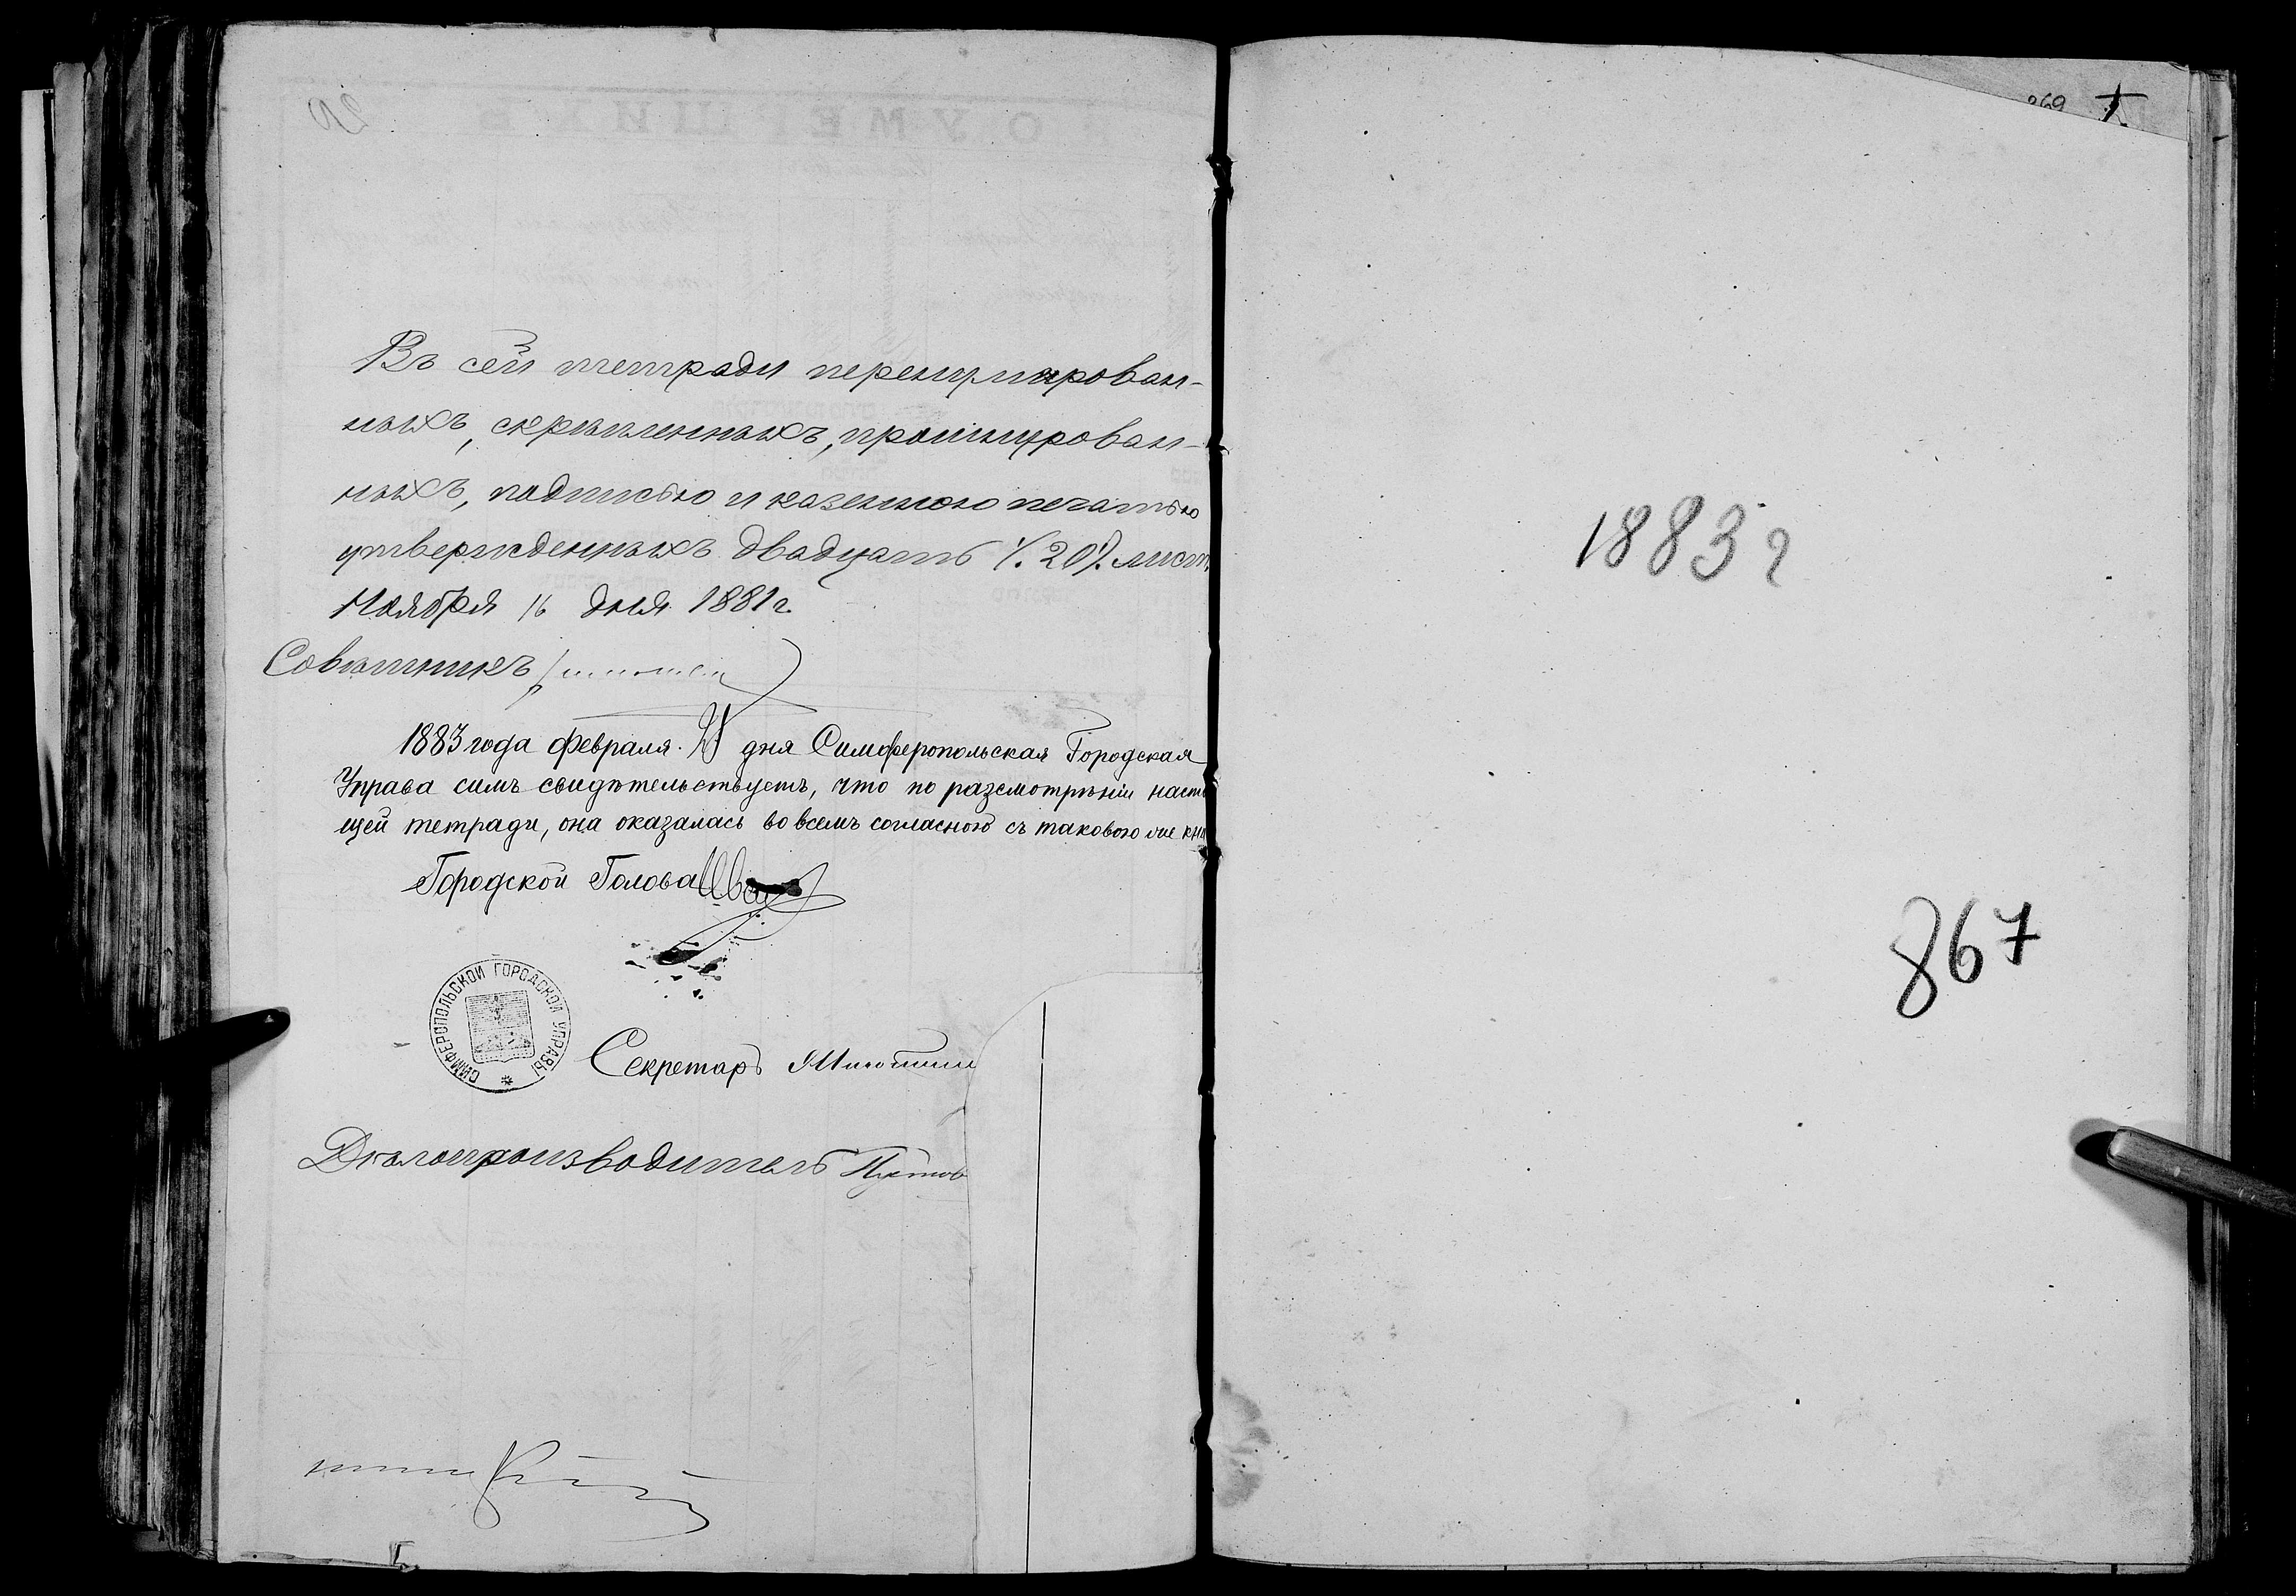 Въ сей тетради перенумерован-
ныхъ, скрѣпленныхъ, прошнурован-
ныхъ, подписью и казенною печатью
утвержденныхъ двадцать /.20/. лист.
Ноября 16 дня 1881 г.
Совѣтникъ
1883 года февраля дня Симферопольская Городская
Управа симъ свидѣтельствуетъ, что по разсмотрѣніи насто
щей тетради, она оказалась во всемъ согласною съ таковою
Городской Голова Иванов
СИМФЕРОПОЛЬСКОЙ ГОРОДСКОЙ УПРАВЫ
Секретарь
Дѣлопроизводитель
269
1883 г
867